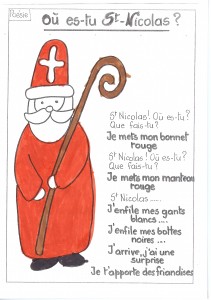 Poésie
Où es-tu St-Nicolas ?
St Nicolas! Où es-tu?
Que fais-tu?
Je mets mon bonnet
rouge
St Nicolas! Où es-tu?
Que fais-tu?
Je mets mon manteau
rouge
St Nicolas .....
J'enfile mes gants
blancs ....
J'enfile mes bottes
noires ....
J'arrive, j'ai une
surprise
Je t'apporte des friandises